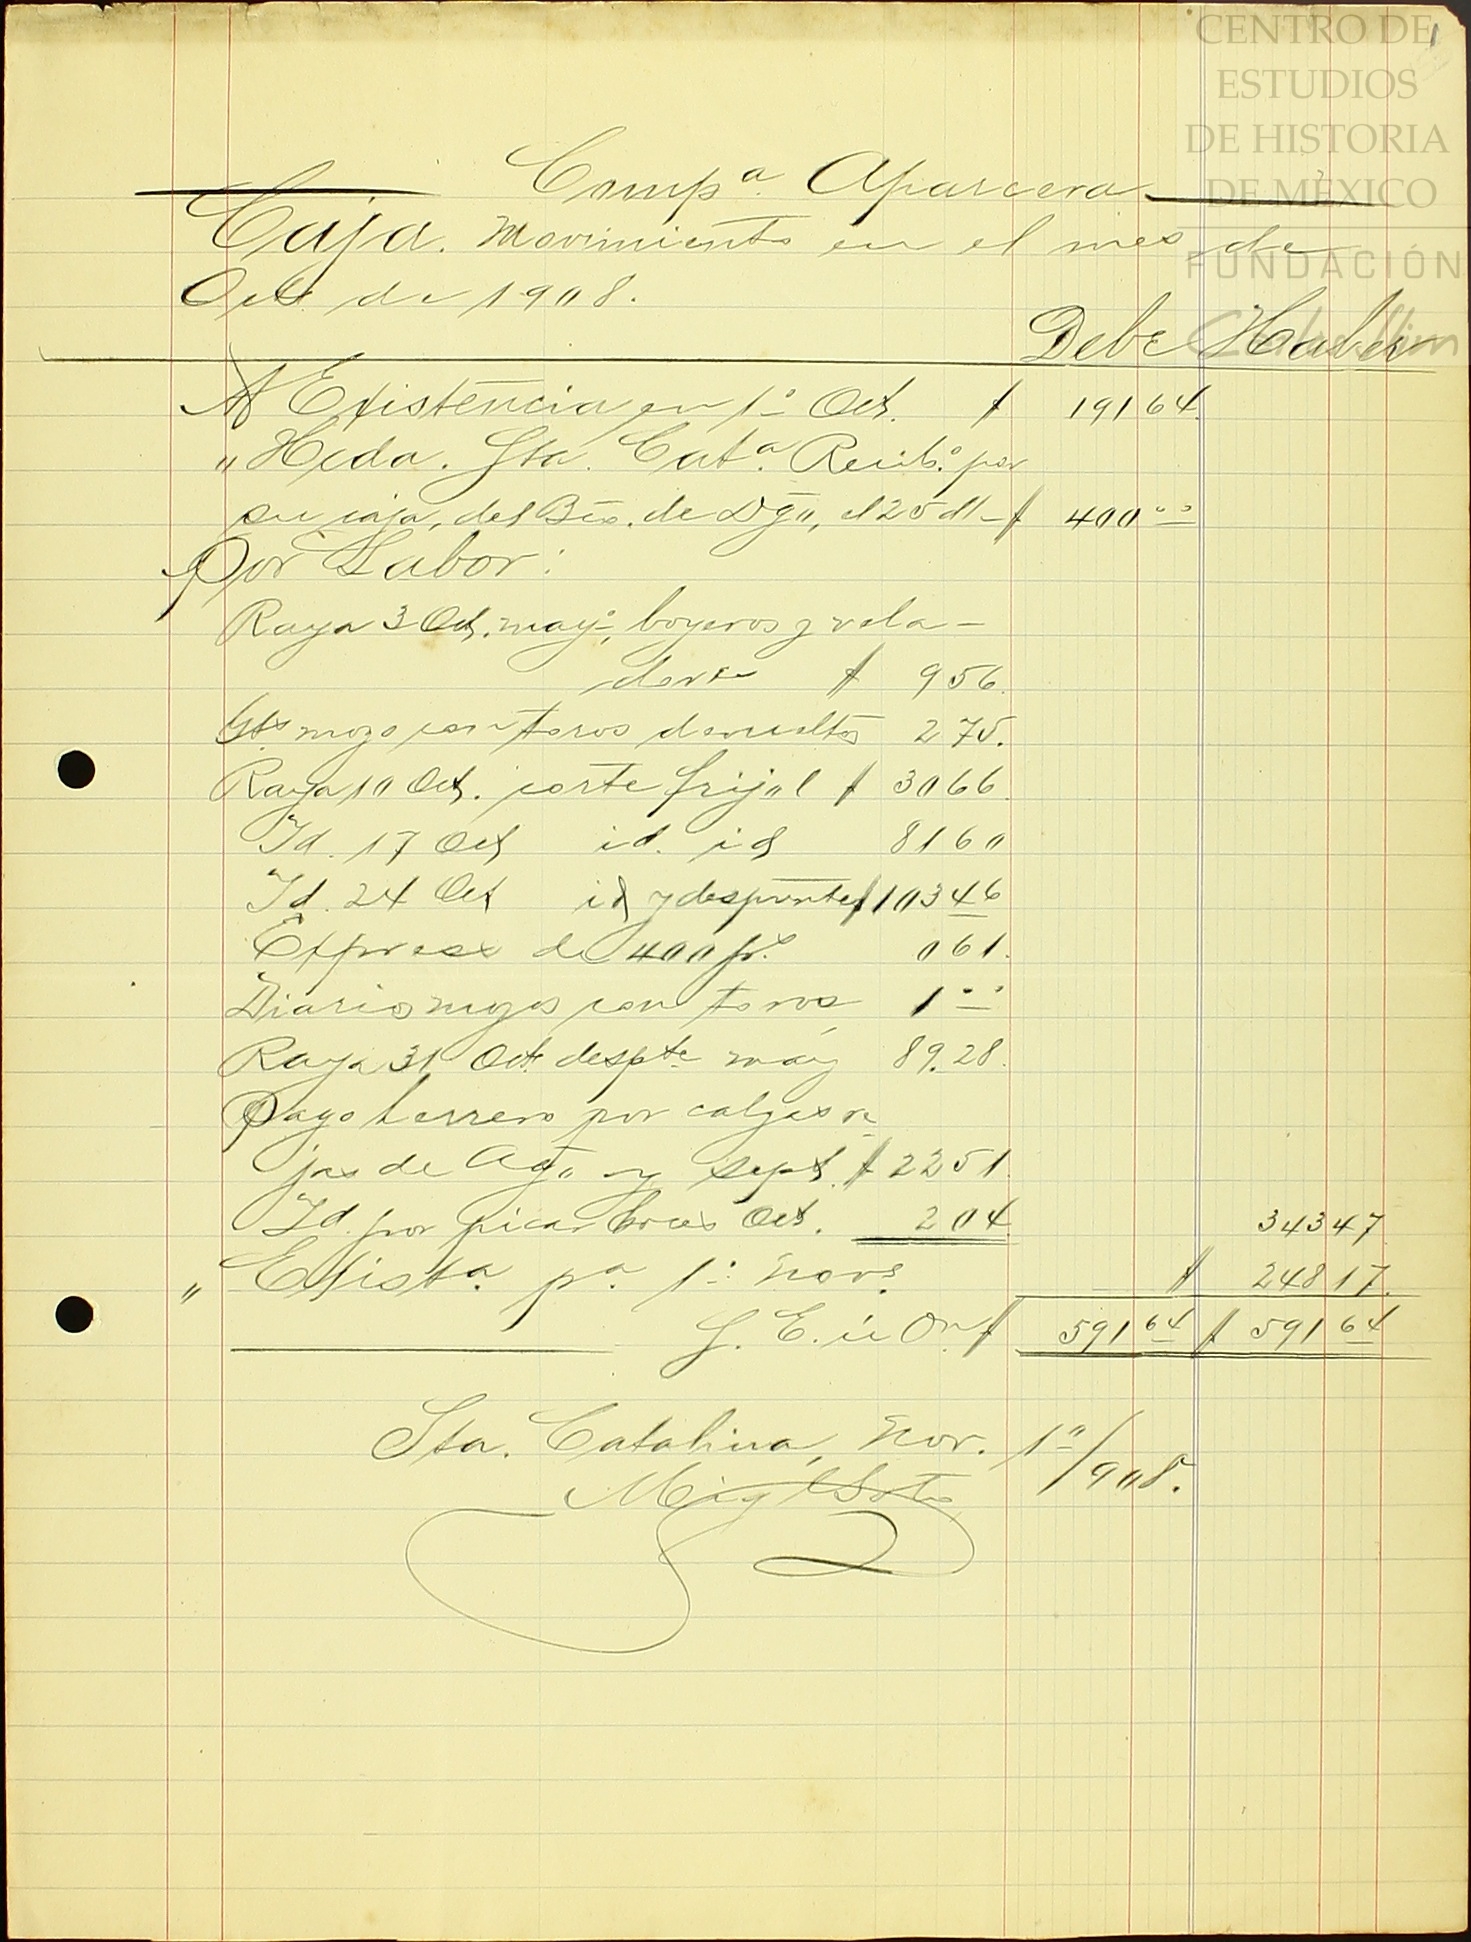 1
CENTRO DE
ESTUDIOS
DE HISTORIA
DE MÉXICO
FUNDACIÓN
Compª. Aparcera
Caja. Movimiento en el mes de
Oct. de 1908.
Debe Haber
A Existencia en 1º Oct. $ 191 64.
" Hcda. Sta. Catª. Recib.º por
su caja, del Bco. de Dgo, el 25 dl- $ 400 00
Por Labor:
Raya 3 Oct. mayº, boyeros y vela-
dores $ 9 56.
Gts mozo con toros devueltos 2 75.
Raya 10 Oct. corte frijol $ 30 66.
Id. 17 Oct id. id 81 60
Id. 24 Oct id y despunte $ 103 46
Express de 400 ps. 0 61.
Diario mozos con toros 1 00
Raya 31 Oct. despte. may 89.28.
Pago herrero por calzas re
jas de Agº y Sept. $ 22 51.
Id por picar hoces Oct. 2 04 343 47
" Existª. pª. 1º Nove. $ 248 17.
S. E. ú On. $ 591 64 $ 591 64
Sta. Catalina, Nov. 1º/908.
Migl Soto